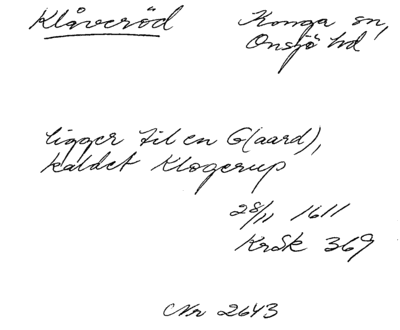 Klåveröd
Konga sn,
Onsjö hd
ligger til en G(aard),
kaldet Klogerup
28/11 1611
KrSk 369
Nr 2643